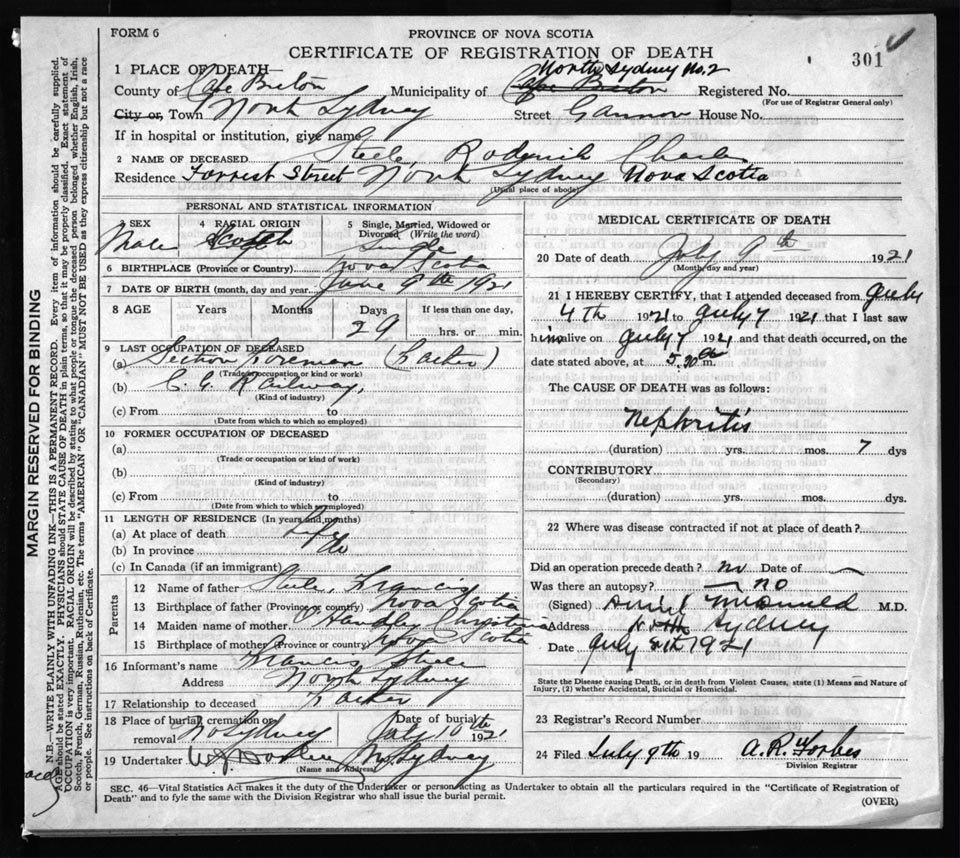 FORM 6
PROVINCE OF NOVA SCOTIA
CERTIFICATE OF REGISTRATION OF DEATH
301
1 PLACE OF DEATH
North Sydney No. 2
County of Cape Breton Municipality of Cape Breton Registered No.
(For use of Registrar General only)
City or, Town North Sydney Street Gannon House No.
If in hospital or institution, give name
2 NAME OF DECEASED Steele, Roderick Charles
Residence Forrest Street North Sydney Nova Scotia
(Usual place of abode)
PERSONAL AND STATISTICAL INFORMATION
3 SEX 4 RACIAL ORIGIN 5 Single, Married, Widowed or Divorced (Write the word)
Male Scotch Single
6 BIRTHPLACE (Province or Country) Nova Scotia
7 DATE OF BIRTH (month, day and year) June 9th 1921
8 AGE Years Months Days If less than one day,
29 hrs. or min.
9 LAST OCCUPATION OF DECEASED
(a) Section Foreman (Father)
(Trade or occupation or kind of work)
(b) C. G. Railway,
(Kind of industry)
(c) From to
(Date from which to which so employed)
10 FORMER OCCUPATION OF DECEASED
(a)
(Trade or occupation or kind of work)
(b)
(Kind of industry)
(c) From to
(Date from which to which so employed)
11 LENGTH OF RESIDENCE (In years and months)
(a) At place of death Life
(b) In province do
(c) In Canada (if an immigrant)
Parents
12 Name of father Steele, Francis
13 Birthplace of father (Province or country) Nova Scotia
14 Maiden name of mother Christina
15 Birthplace of mother (Province or country) Nova Scotia
16 Informant's name Francis Steele
Address North Sydney
17 Relationship to deceased Father
18 Place of burial, cremation or removal No Sydney Date of burial July 10th 1921
19 Undertaker N. Sydney
(Name and Address)
MEDICAL CERTIFICATE OF DEATH
20 Date of death July 9th 1921
(Month, day and year)
21 I HEREBY CERTIFY, that I attended deceased from July
4th 1921 to July 7 1921 that I last saw
him alive on July 7 1921 and that death occurred, on
date stated above, at 5.30 m.
The CAUSE OF DEATH was as follows:
Nephritis
(duration) yrs. mos. 7 dys
CONTRIBUTORY
(Secondary)
(duration) yrs. mos. dys.
22 Where was disease contracted if not at place of death?
Did an operation precede death? no Date of
Was there an autopsy? no
(Signed) M.D.
Address North Sydney
Date July 1921
State the Disease causing Death, or in death from Violent Causes, state (1) Means and Nature of
Injury, (2) whether Accidental, Suicidal or Homicidal.
23 Registrar's Record Number
24 Filed July 9th 19 A. R. Forbes
Division Registrar
SEC. 46—Vital Statistics Act makes it the duty of the Undertaker or person acting as Undertaker to obtain all the particulars required in the "Certificate of Registration of
Death" and to fyle the same with the Division Registrar who shall issue the burial permit.
(OVER)
MARGIN RESERVED FOR BINDING
N.B.—WRITE PLAINLY WITH UNFADING INK—THIS IS A PERMANENT RECORD. Every item of information should be carefully supplied.
AGE should be stated EXACTLY. PHYSICIANS should STATE CAUSE OF DEATH in plain terms, so that it may be properly classified. Exact statement of
OCCUPATION is very important. RACIAL ORIGIN will be described by stating to what people or tongue the deceased person belonged whether English, Irish,
Scotch, French, German, Russian, Ruthenian, etc. The terms "AMERICAN" OR "CANADIAN" MUST NOT BE USED as they express citizenship but not a race
or people. See instructions on back of Certificate.